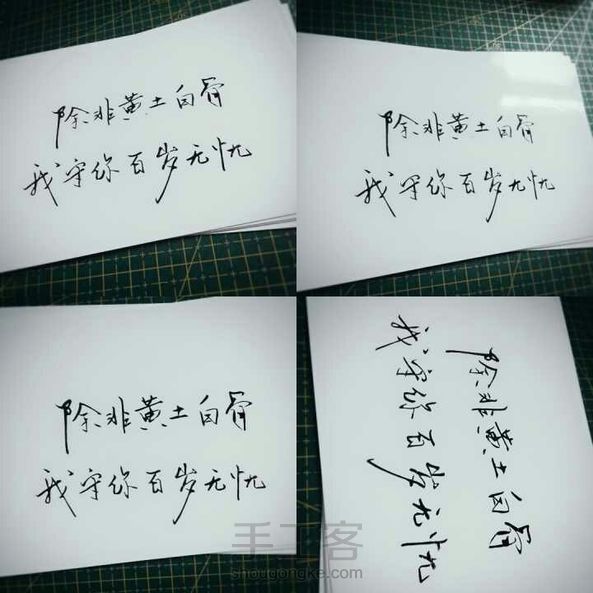 除非黄土白骨
我守你百岁无忧
除非黄土白骨
我守你百岁无忧
除非黄土白骨
我守你百岁无忧
除非黄土白骨
我守你百岁无忧
手工客
shougongke.com